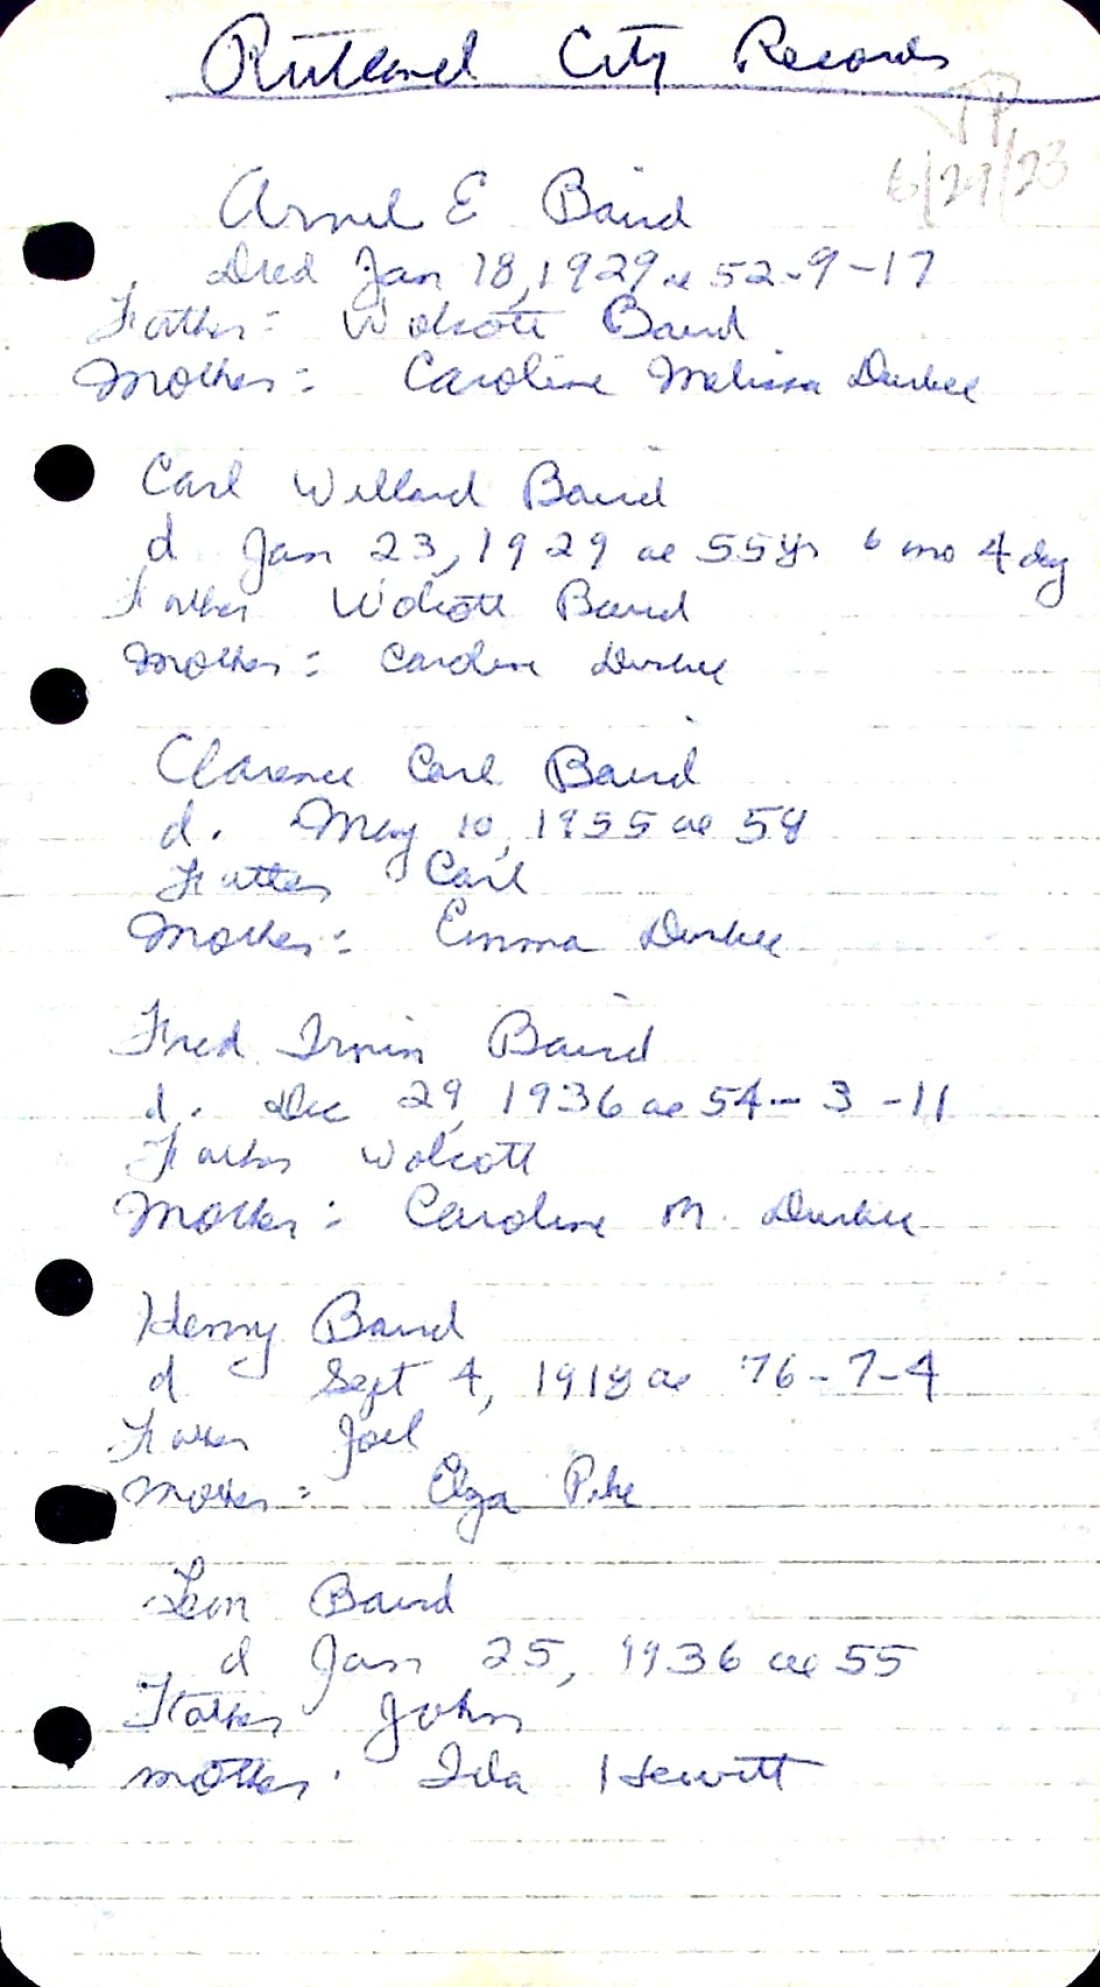 Rutland City Records
TP
6/29/23
Arnel E Baird
Died Jan 18, 1929 ae 52-9-17
Father: Wolcott Baird
Mother: Caroline Melissa Durkee
Carl Willard Baird
d Jan 23, 1929 ae 55 yr 6 mo 4 day
Father Wolcott Baird
Mother: Caroline Durkee
Clarence Carl Baird
d. May 10, 1955 ae 58
Father Carl
Mother: Emma Durkee
Fred Irwin Baird
d. Dec 29, 1936 ae 54-3-11
Father Wolcott
Mother: Caroline M. Durkee
Henry Baird
d Sept 4, 1918 ae 76-7-4
Father Joel
Mother: Pike
Leon Baird
d Jan 25, 1936 ae 55
Father John
Mother. Ida Hewitt